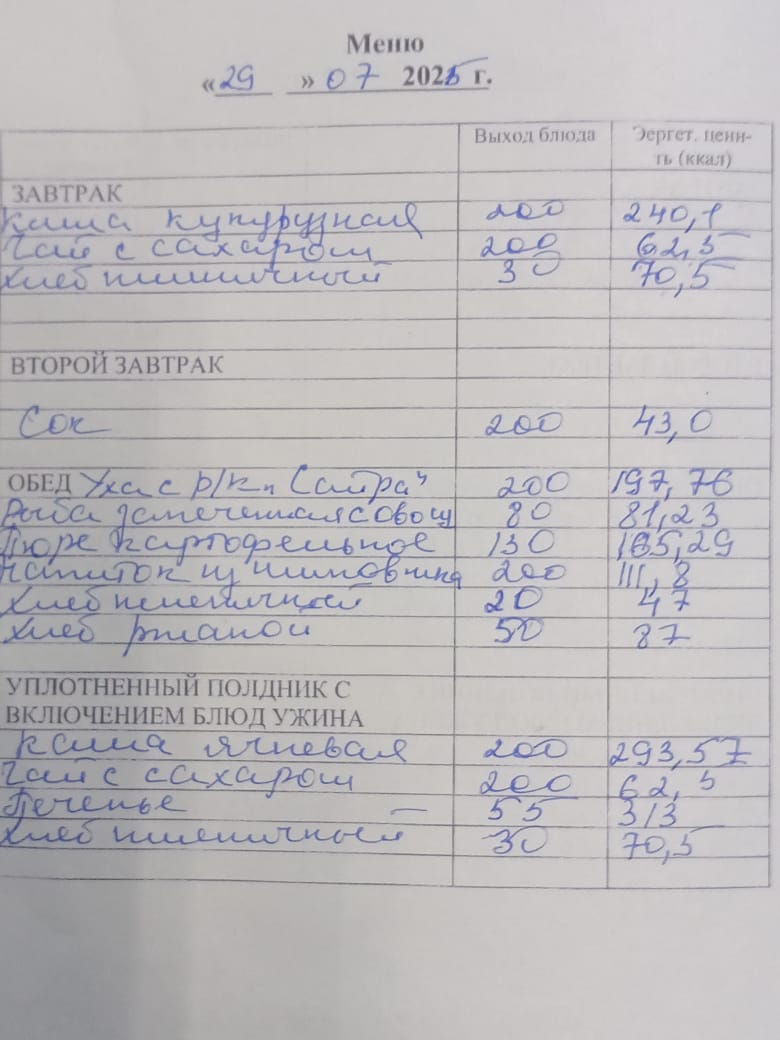 Меню
«29» 07 2025 г.
Выход блюда Эергет. ценн-
ть (ккал)
ЗАВТРАК
Каша кукурузная 200 240,1
Чай с сахаром 200 62,5
Хлеб пшеничный 30 70,5
ВТОРОЙ ЗАВТРАК
Сок 200 43,0
ОБЕД Уха с р/к „Сайра" 200 197,76
Рыба запеченная с овощ 80 81,23
Пюре картофельное 130 165,29
Напиток из шиповника 200 111,8
Хлеб пшеничный 20 47
Хлеб ржаной 50 87
УПЛОТНЕННЫЙ ПОЛДНИК С
ВКЛЮЧЕНИЕМ БЛЮД УЖИНА
Каша ячневая 200 293,57
Чай с сахаром 200 62,5
Печенье — 55 313
Хлеб пшеничный 30 70,5